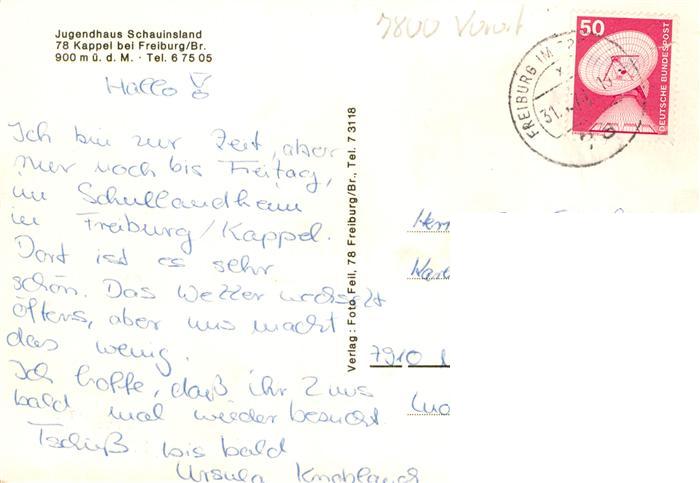 Jugendhaus Schauinsland
78 Kappel bei Freiburg/Br.
900 m ü. d. M. · Tel. 6 75 05
Hallo!
Ich bin zur Zeit, aber
nur noch bis Freitag,
im Schullandheim
in Freiburg/Kappel.
Dort ist es sehr
schön. Das Wetter wechselt
öfters, aber uns macht
das wenig.
Ich hoffe, daß ihr 2 uns
bald mal wieder besucht.
Tschüß bis bald
Ursula
Verlag: Foto Feil, 78 Freiburg/Br., Tel. 7 31 18
7800
50
DEUTSCHE BUNDESPOST
FREIBURG IM
31.
7910